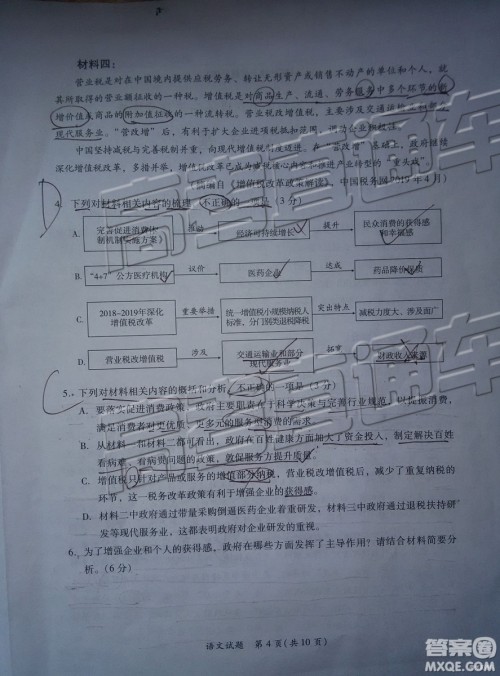 材料四：
营业税是对在中国境内提供应税劳务、转让无形资产或销售不动产的单位和个人，就
其所取得的营业额征收的一种税。增值税是对商品生产、流通、劳务服务中多个环节的新
增价值或商品的附加值征收的一种流转税。营业税改增值税，主要涉及交通运输业和部分
现代服务业。“营改增”后，有利于扩大企业进项税抵扣范围，调动企业积极性。
中国坚持减税与完善税制并重，向现代增值税制度迈进。在“营改增”基础上，继续
深化增值税改革，多措并举，增值税改革已成为减税核心内容和推进产业转型的“重头戏”。
（摘编自《增值税改革政策解读》，中国税务网2019年4月）
D
4. 下列对材料相关内容的梳理，不正确的一项是（3分）
A. 完善促进消费体制机制实施方案》 推动 经济可持续增长 提升 民众消费的获得感和幸福感
B. “4+7”公立医疗机构 议价 医药企业 达成 药品降价提质
C. 2018-2019年深化增值税改革 重要举措 统一增值税小规模纳税人标准，分门别类退税降税 突出特点 减税力度大、涉及面广
D. 营业税改增值税 涉及 交通运输业和部分现代服务业 财政收入
C
5. 下列对材料相关内容的概括和分析，不正确的一项是（3分）
A. 要落实促进消费政策，政府主要发力在于科学决策与完善行业规范，以提振消费，
满足消费者对更优质、更多元的服务型消费的需求。
B. 从材料一和材料二都可以看出，政府在百姓健康方面加大了资金投入，制定解决百姓
看病难、看病贵问题的政策，敦促服务方提升质量。
C. 增值税只针对产品或服务的增值部分纳税，营业税改增值税后，减少了重复纳税的
环节，这一税务改革政策有利于增强企业的获得感。
D. 材料二中政府通过带量采购倒逼医药企业着重研发，材料三中政府通过退税扶持研
发等现代服务业，这都表明政府对企业研发的重视。
6. 为了增强企业和个人的获得感，政府在哪些方面发挥了主导作用？请结合材料简要分
析。（6分）
语文试题 第4页（共10页）
高考直通车
答案圈
MXQE.COM